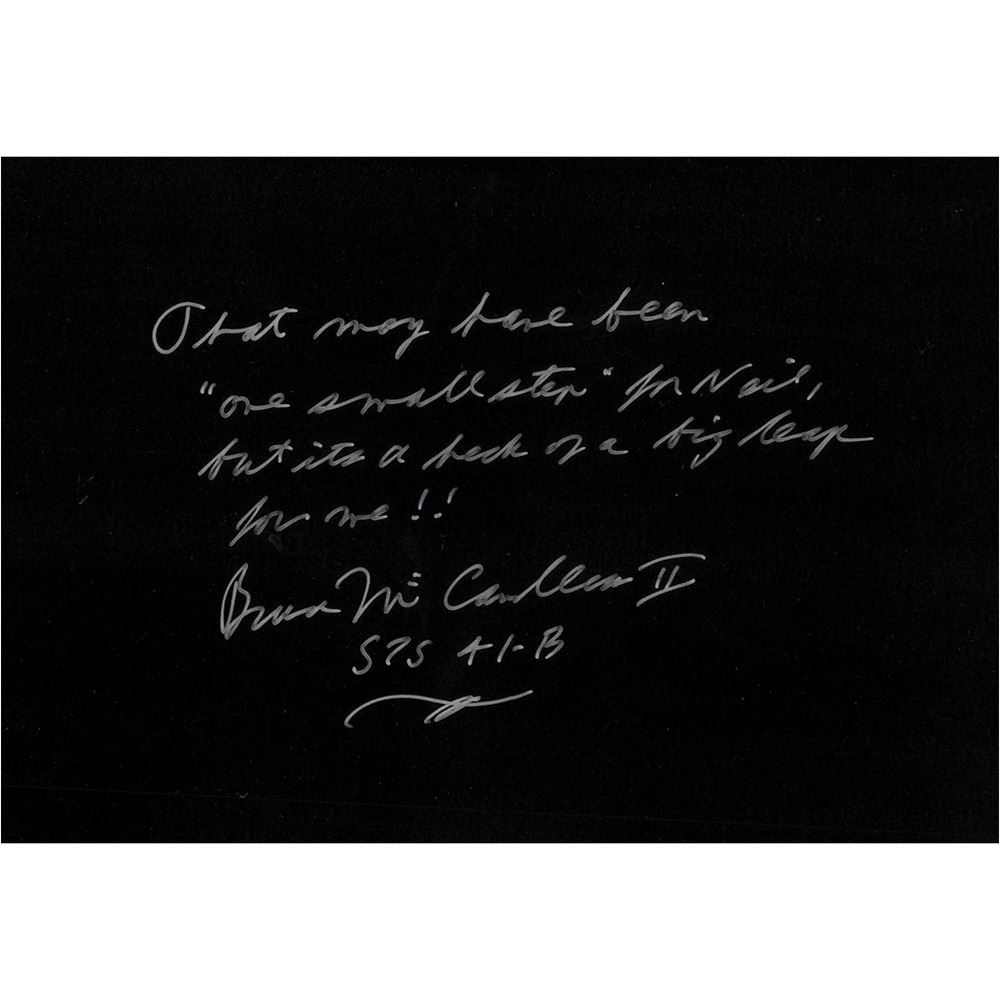 That may have been
"one small step" for Neil,
but its a heck of a big leap
for me!!
Bruce McCandless II
STS 41-B